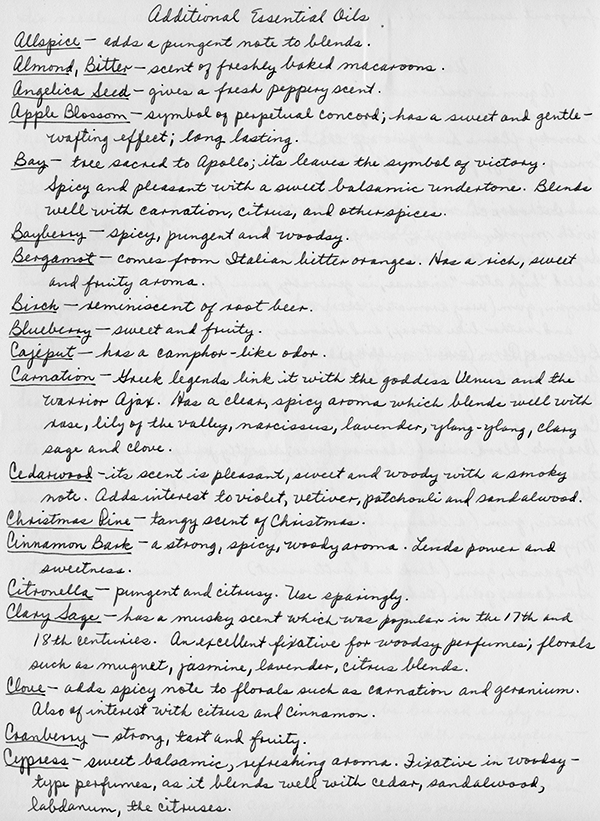 Additional Essential Oils
Allspice – adds a pungent note to blends.
Almond, Bitter – scent of freshly baked macaroons.
Angelica Seed – gives a fresh peppery scent.
Apple Blossom – symbol of perpetual concord; has a sweet and gentle-
wafting effect; long lasting.
Bay – tree sacred to Apollo; its leaves the symbol of victory.
Spicy and pleasant with a sweet balsamic undertone. Blends
well with carnation, citrus, and other spices.
Bayberry – spicy, pungent and woodsy.
Bergamot – comes from Italian bitter oranges. Has a rich, sweet
and fruity aroma.
Birch – reminiscent of root beer.
Blueberry – sweet and fruity.
Cajeput – has a camphor-like odor.
Carnation – Greek legends link it with the goddess Venus and the
warrior Ajax. Has a clear, spicy aroma which blends well with
rose, lily of the valley, narcissus, lavender, ylang-ylang, clary
sage and clove.
Cedarwood – its scent is pleasant, sweet and woody with a smoky
note. Adds interest to violet, vetiver, patchouli and sandalwood.
Christmas Pine – tangy scent of Christmas.
Cinnamon Bark – a strong, spicy, woody aroma. Lends power and
sweetness.
Citronella – pungent and citrusy. Use sparingly.
Clary Sage – has a musky scent which was popular in the 17th and
18th centuries. An excellent fixative for woodsy perfumes; florals
such as muguet, jasmine, lavender, citrus blends.
Clove – adds spicy note to florals such as carnation and geranium.
Also of interest with citrus and cinnamon.
Cranberry – strong, tart and fruity.
Cypress – sweet balsamic, refreshing aroma. Fixative in woodsy-
type perfumes, as it blends well with cedar, sandalwood,
labdanum, the citruses.